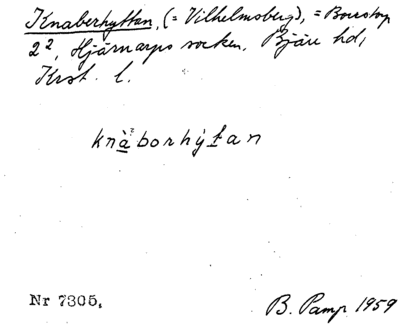 Knaberhyttan, (= Vilhelmsberg), = Boarstorp
2², Hjärnarps socken, Bjäre hd,
Krst. l.
knàborhýtan
Nr 7305.
B. Pamp 1959